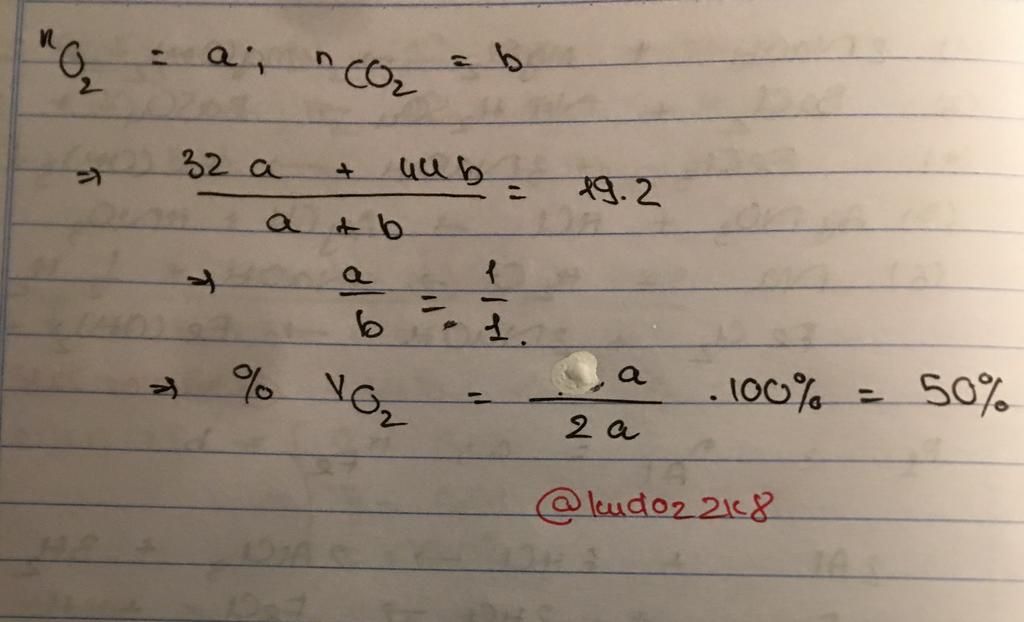 nO2 = a ; nCO2 = b
⇒ (32a + 44b)/(a + b) = 19.2
⇒ a/b = 1/1.
⇒ % VO2 = a/2a .100% = 50%
@kudo22k8